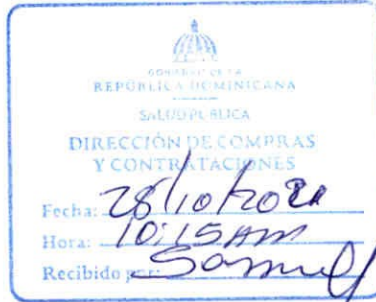 GOBIERNO DE LA
REPÚBLICA DOMINICANA
SALUD PÚBLICA
DIRECCIÓN DE COMPRAS
Y CONTRATACIONES
Fecha: 28/10/2021
Hora: 10:15 AM
Recibido por: Samuel